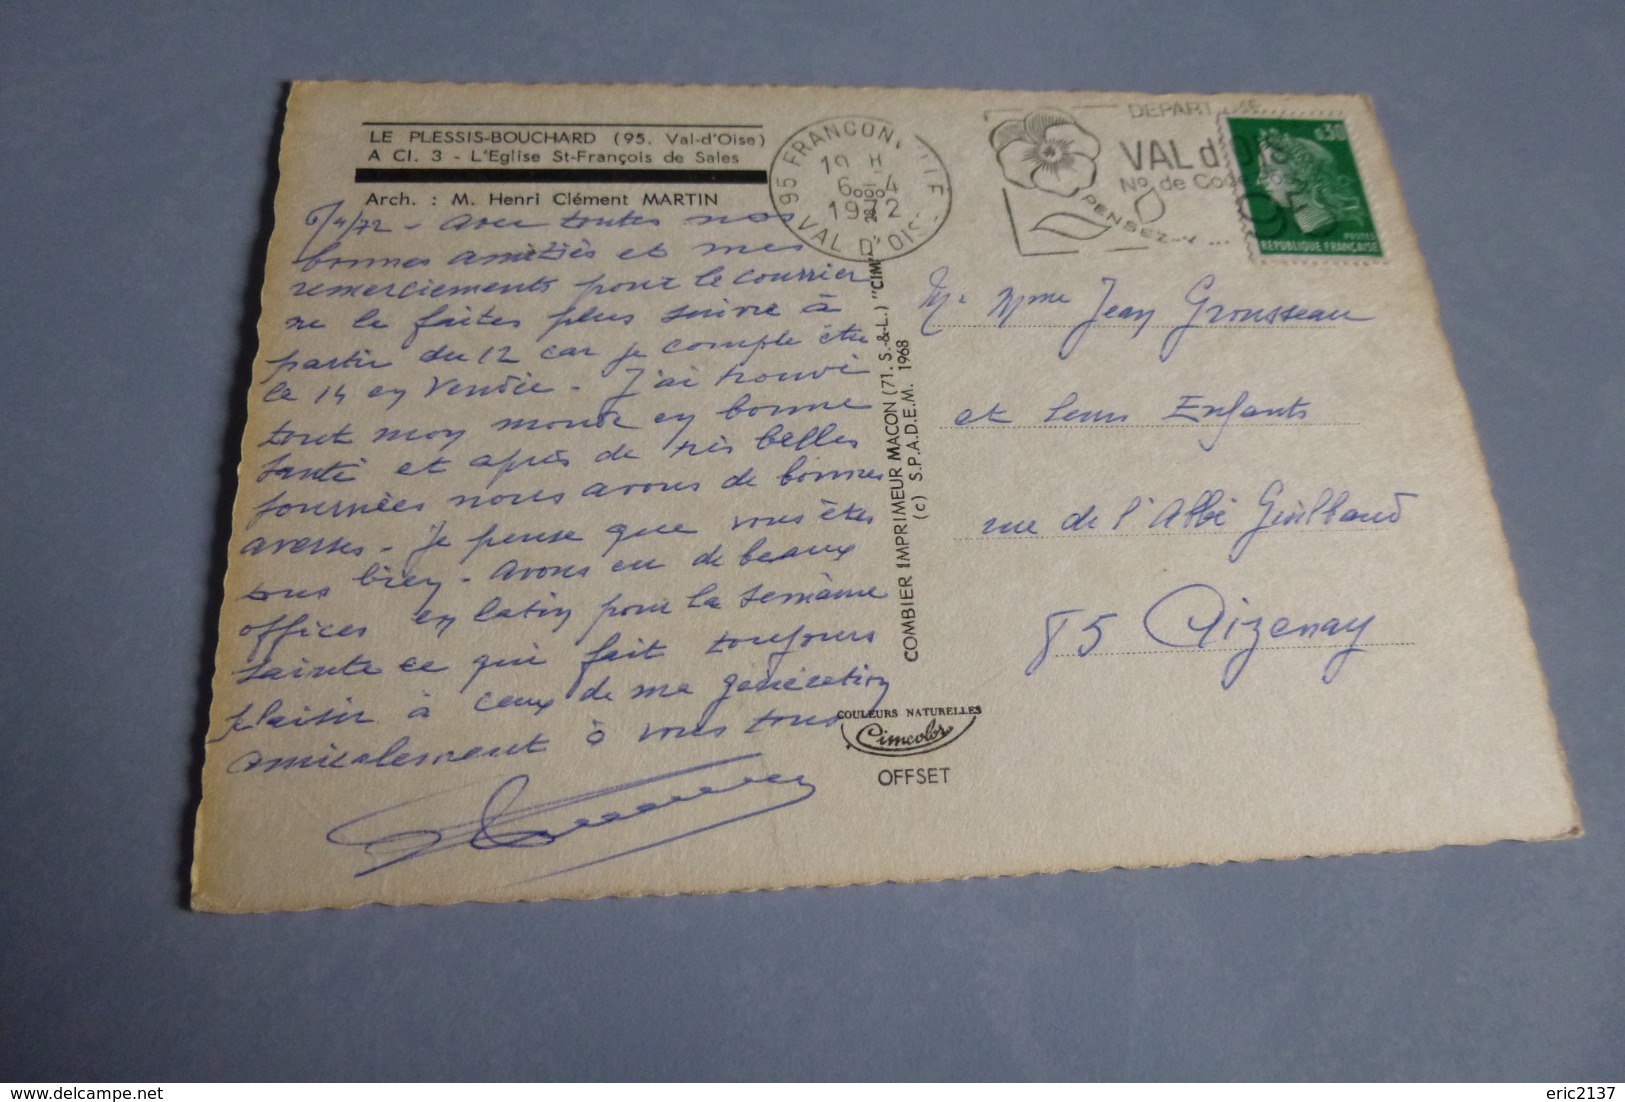 LE PLESSIS-BOUCHARD (95. Val-d'Oise)
A CI. 3 - L'Eglise St-François de Sales
Arch. : M. Henri Clément MARTIN
6/4/72 - Avec toutes nos
bonnes amitiés et mes
remerciements pour le courrier
ne le faites plus suivre à
partir du 12 car je compte être
le 14 en Vendée - J'ai trouvé
tout mon monde en bonne
santé et après de très belles
journées nous avons de bonnes
averses - Je pense que vous êtes
tous bien - Avons eu de beaux
offices en latin pour la semaine
sainte ce qui fait toujours
plaisir à ceux de ma génération
amicalement à vous tous
COMBIER IMPRIMEUR MACON (71. S.-&-L.) "CIM"
(c) S.P.A.D.E.M. 1968
COULEURS NATURELLES
Cimcolor
OFFSET
95 FRANCONVILLE
6-4
1972
VAL D'OISE
DEPARTEMENT
VAL d'OISE
No de Code
95
PENSEZ-Y ...
0,30
POSTES
REPUBLIQUE FRANÇAISE
Mr Mme Jean Grousseau
et leurs Enfants
rue de l'Abbé Guilbaud
85 Aizenay
www.delcampe.net
eric2137